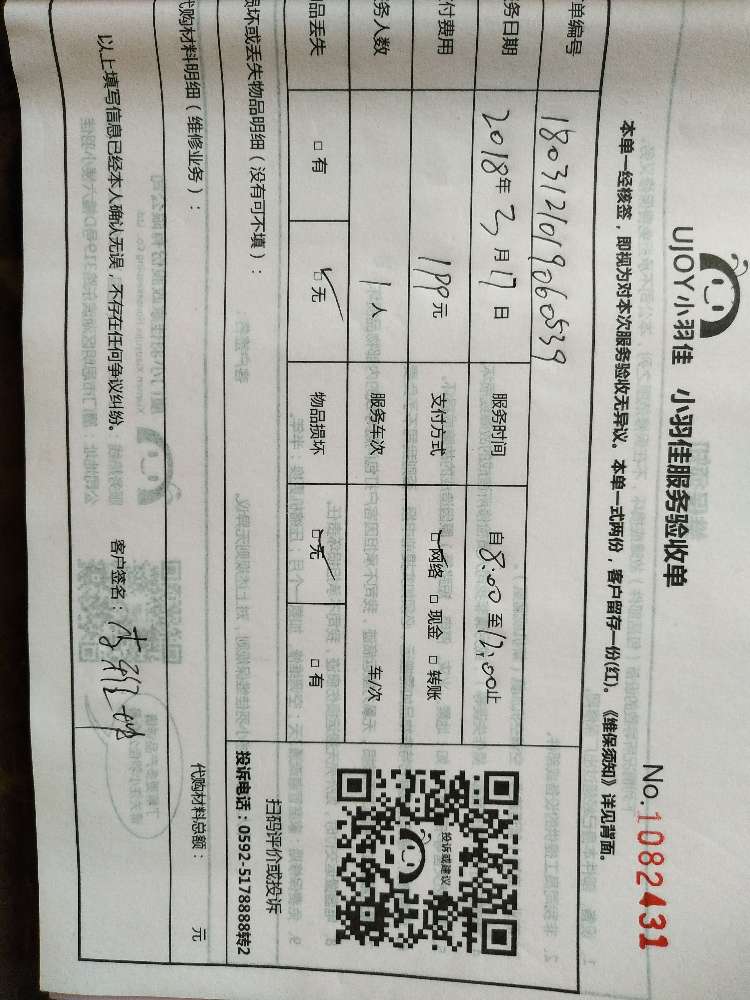 UJOY小羽佳 小羽佳服务验收单
No.1082431
本单一经核签，即视为对本次服务验收无异议。本单一式两份，客户留存一份(红)。《维保须知》详见背面。
单编号 1803121019060539
务日期 2018年3月17日 服务时间 自8:00至12:00止
付费用 199元 支付方式 □网络 □现金 □转账
务人数 1人 服务车次 车/次
品丢失 □有 □无 物品损坏 □无 □有
投诉或建议
扫码评价或投诉
投诉电话：0592-5178888转2
损坏或丢失物品明细（没有可不填）：
代购材料明细（维修业务）： 代购材料总额： 元
以上填写信息已经本人确认无误，不存在任何争议纠纷。 客户签名：